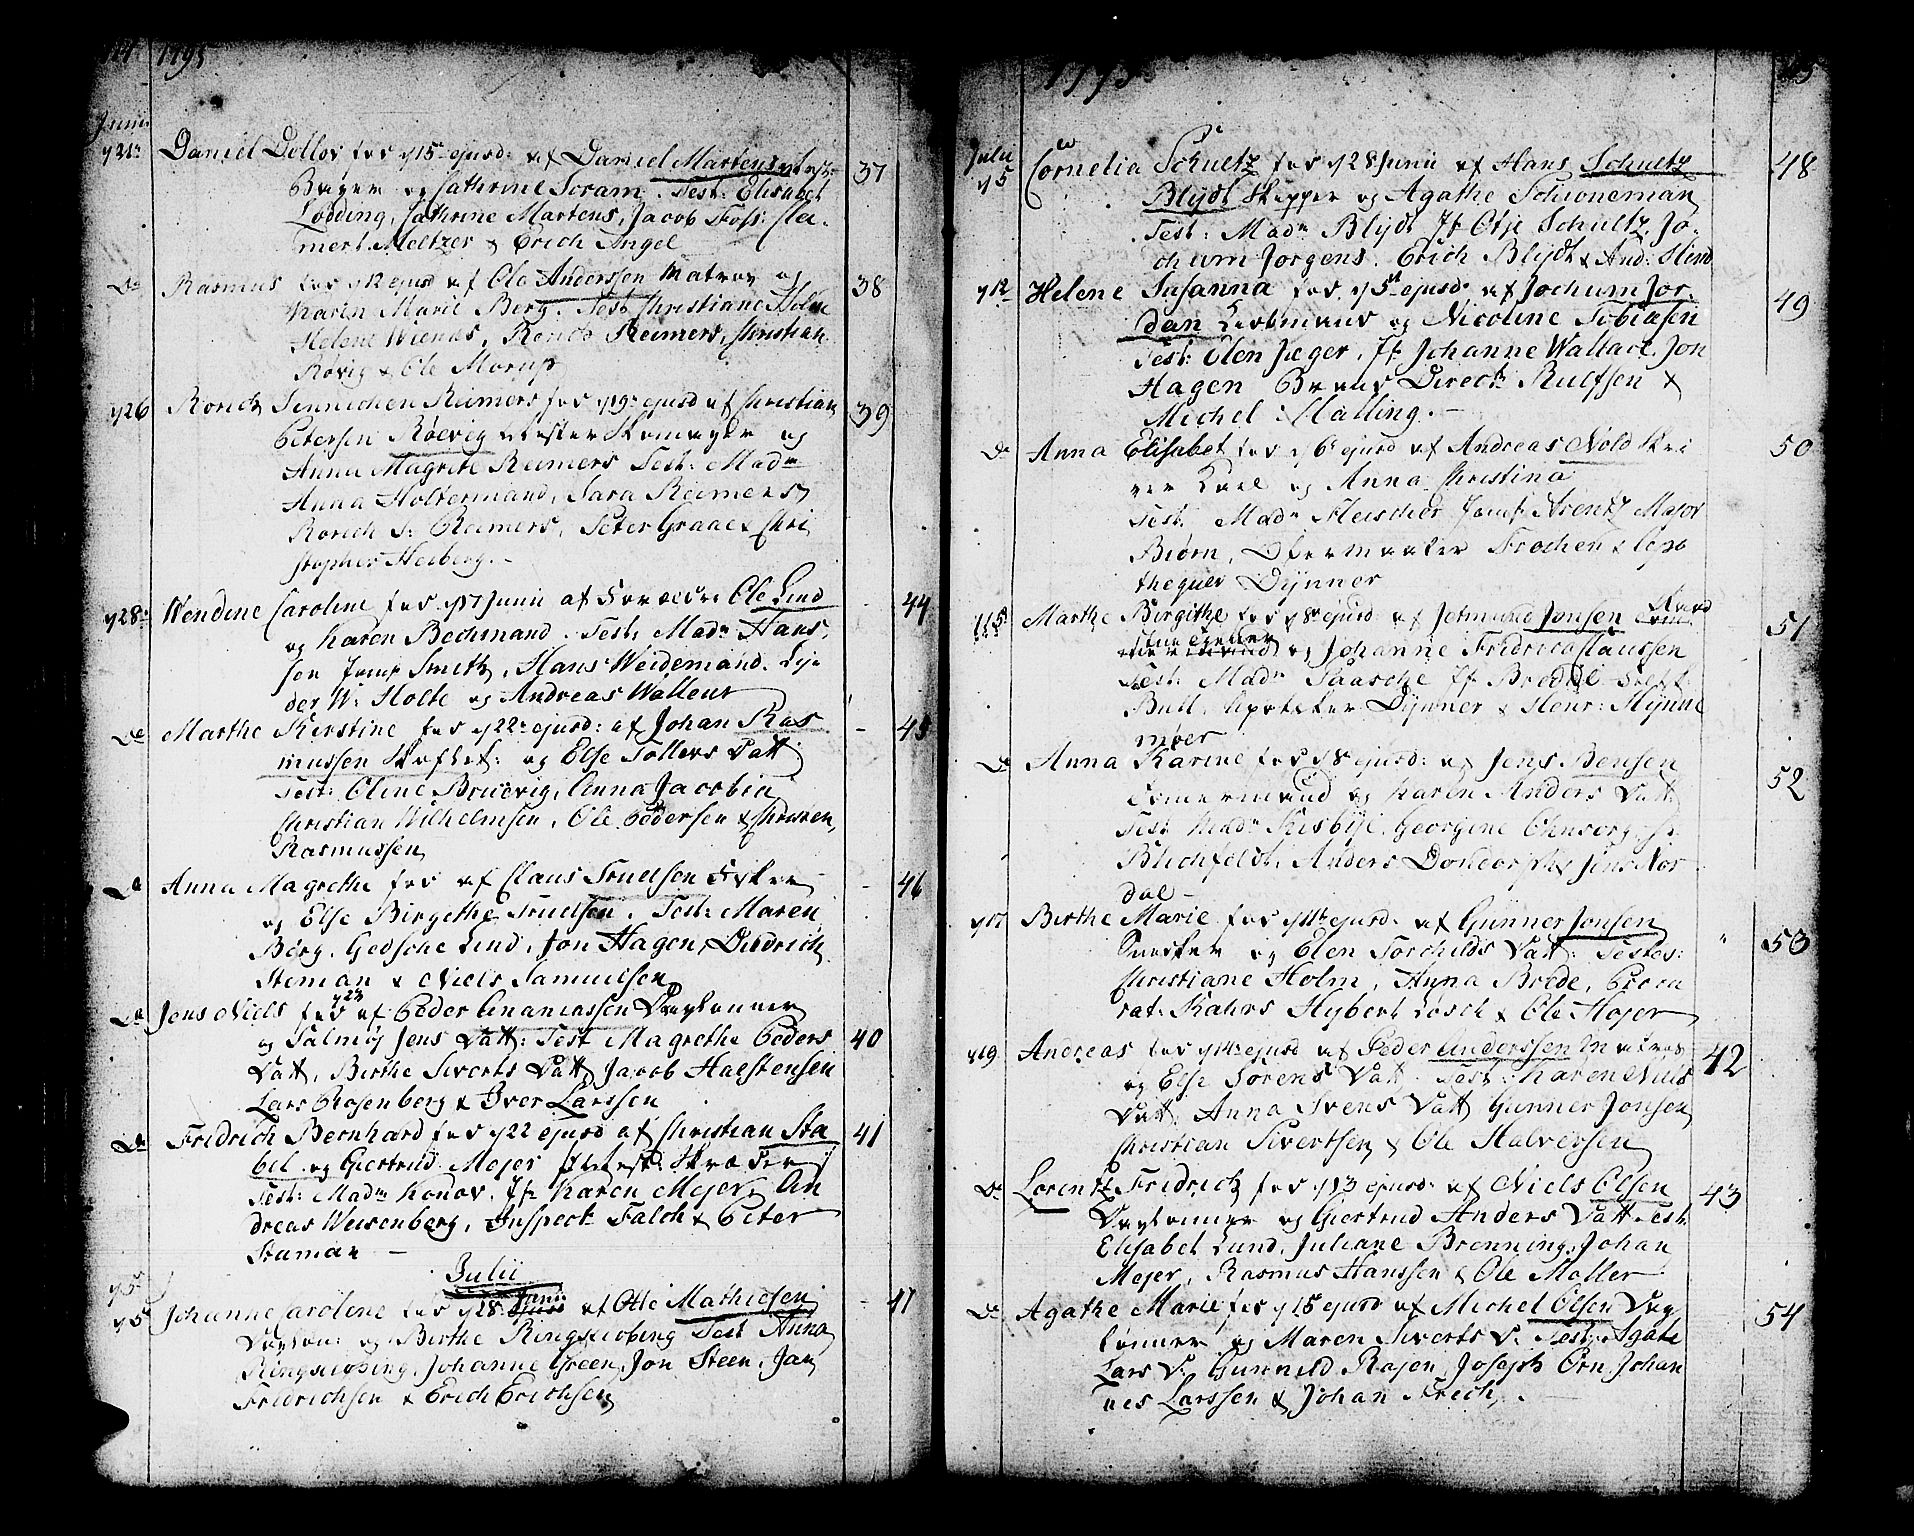 1795
Junii
y 21de Daniel Dollov fød y 15 ejusd: af Daniel Martens
Bager og Cathrine Scram. Test: Elisabet 37
Lodding, Cathrine Martens, Jacob Foss: Cle-
mert Meltzer & Erich Angel
Do Rasmus fød y 12 ejusd af Ole Anderssen Matros og 38
Karin Marie Berg. Test: Christiane Holm
Helene Wienes, Reimers, Christian
Rövig & Ole Morup
y 26 Rorich Sennichen Reimers fød y 19 ejusd af Christian 39
Petersen Röevig Skomager og
Anna Magrete Reimers Test: Madm
Anna Holtermand, Sara Reimers
Rorich S: Reimers, Peter Graae & Chri
stopher Heiberg. -
y 28: Wendine Caroline fød y 17 Junii af Ole Lind 44
og Karen Bechmand. Test: Madm Hans-
sen Jomf Smith, Hans Weidemand.
der W: Holte og Andreas Wallent
Do Marthe Kirstine fød y 22 ejusd: af Johan Ras 45
mussen og Else Tollevs Datt
Test: Oline Bruevig, Anna Jacobin
Christian Wilhelmsen, Ole Pedersen & Christen
Rasmussen
Do Anna Magrethe fød af Claus Truelsen Fisker 46
og Else Birgethe Truelsen. Test: Maren
Börg, Gedsche Lind, Jon Hagen, Didrich
Steman & Niels Samuelsen
Do Jens Niels fød y 23 af Peder Ananiassen Dagløner
og Salmöj Jens Datt: Test Magrethe Peders 40
Datt, Birthe Siverts Datt, Jacob Halstensen
Lars Rosenberg & Iver Larssen
Do Fridrich Bernhard fød y 22 ejusd af Christian Sta 41
bel og Giertrud Mejer Skræder
Test: Madm Konov, Jfr Karen Mejer, An
dreas Weisenberg, Inspect Falch & Peter
Staman -
Julii
y 5 Johanne Carolene fød y 28 Junii af Otte Mathiesen 47
Dagløn: og Birthe Ringkiøbing Test Anna
Ringkiøbing, Johanne Green, Jon Steen, Jan
Fridrichsen & Erich Erichsen
1795
Julii
y 5 Cornelia Schultz fød y 28 Junii af Hans Schultz 48
Blydt Skipper og Agathe Schioneman
Test: Madm Blydt Jf Otje Schultz, Jo-
chum Jorgens. Erich Blydt & And:
y 12 Helene Susanna fød y 5 ejusd af Jochum Jor- 49
dan og Nicoline Tobiasen
Test: Elen Jæger, Jf: Johanne Wallace, Jon
Hagen Direct Rulfsen &
Michel Malling. -
Do Anna Elisabet fød y 6 ejusd af Andreas Nold 50
og Anna Christina
Test: Madm Fleischer Jomf Arentz Major
Biørn, Frochen & Apo
thequer Dynner
y 15 Marthe Birgithe fød y 8 ejusd af Jetmund Jonsen 51
og Johanne Fridrica Claussen
Test: Madm Paasche Jf Bredal
Bull, Apoteker Dynner & Henr: Hynne
møer
Do Anna Karine fød y 8 ejusd: af Jens Bensen 52
Tømermand og Karen Anders Datt
Test: Madm Kisbye, Georgine
Blichfeldt, Anders Dondorph & Jens Nor
dal -
y 17 Birthe Marie fød y 11 ejusd af Gunner Jonsen 53
og Elen Torchilds Datt: Testes:
Christiane Holm, Anna Brede,
rat: Kahrs Hybert Losch & Ole Højer
y 19 Andreas fød y 14 ejusd af Peder Anderssen Matros 42
og Else Sörens Datt. Test: Karen Niels
Datt, Anna Svens Datt Gunner Jonsen
Christian Sivertsen & Ole Halversen
Do Lorentz Fridrich fød y 13 ejusd: af Niels Olsen 43
Dagløner og Giertrud Anders Datt Test:
Elisabet Lund, Juliane Brenning, Johan
Mejer, Rasmus Hanssen & Ole Møller
Do Agathe Marie fød y 15 ejusd af Michel Olsen Dag 54
lønner og Maren Siverts D. Test: Agate
Lars D. Gunnild Rasen, Joseph Orn, Johan
nes Larssen & Johan Frich.